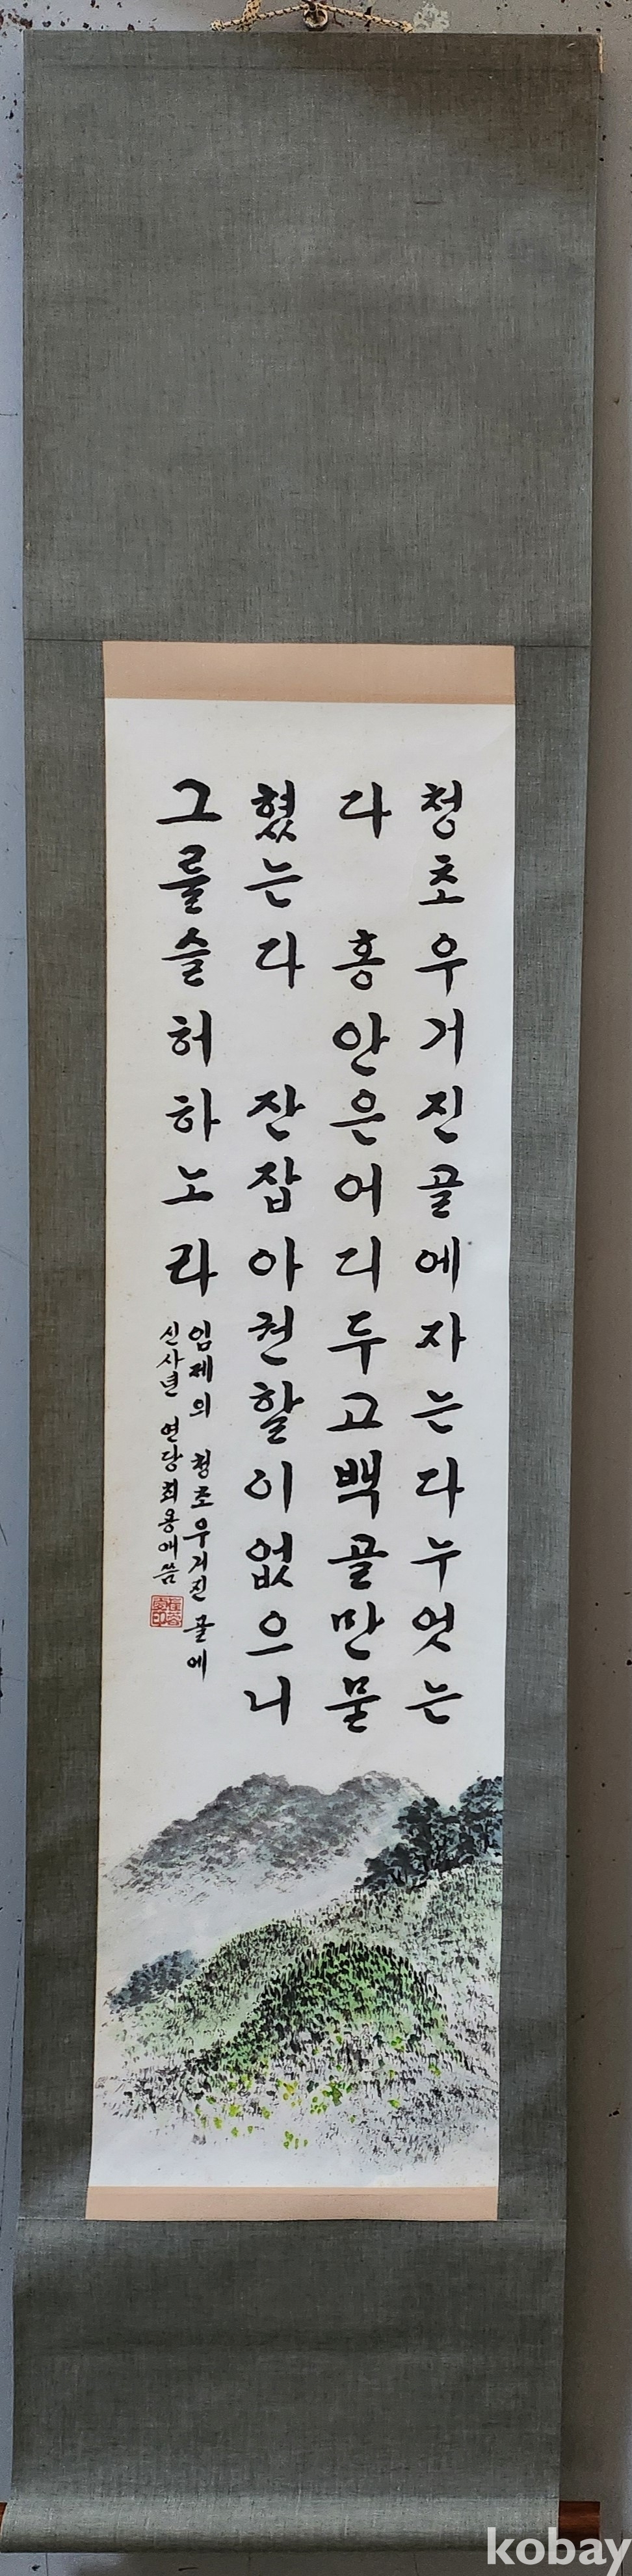 청초우거진골에자는다누엇는
다 홍안은어디두고백골만물
혔는다 잔잡아권할이없으니
그를슬허하노라
임제의 청초우거진 골에
신사년 연당 최용애 씀
kobay